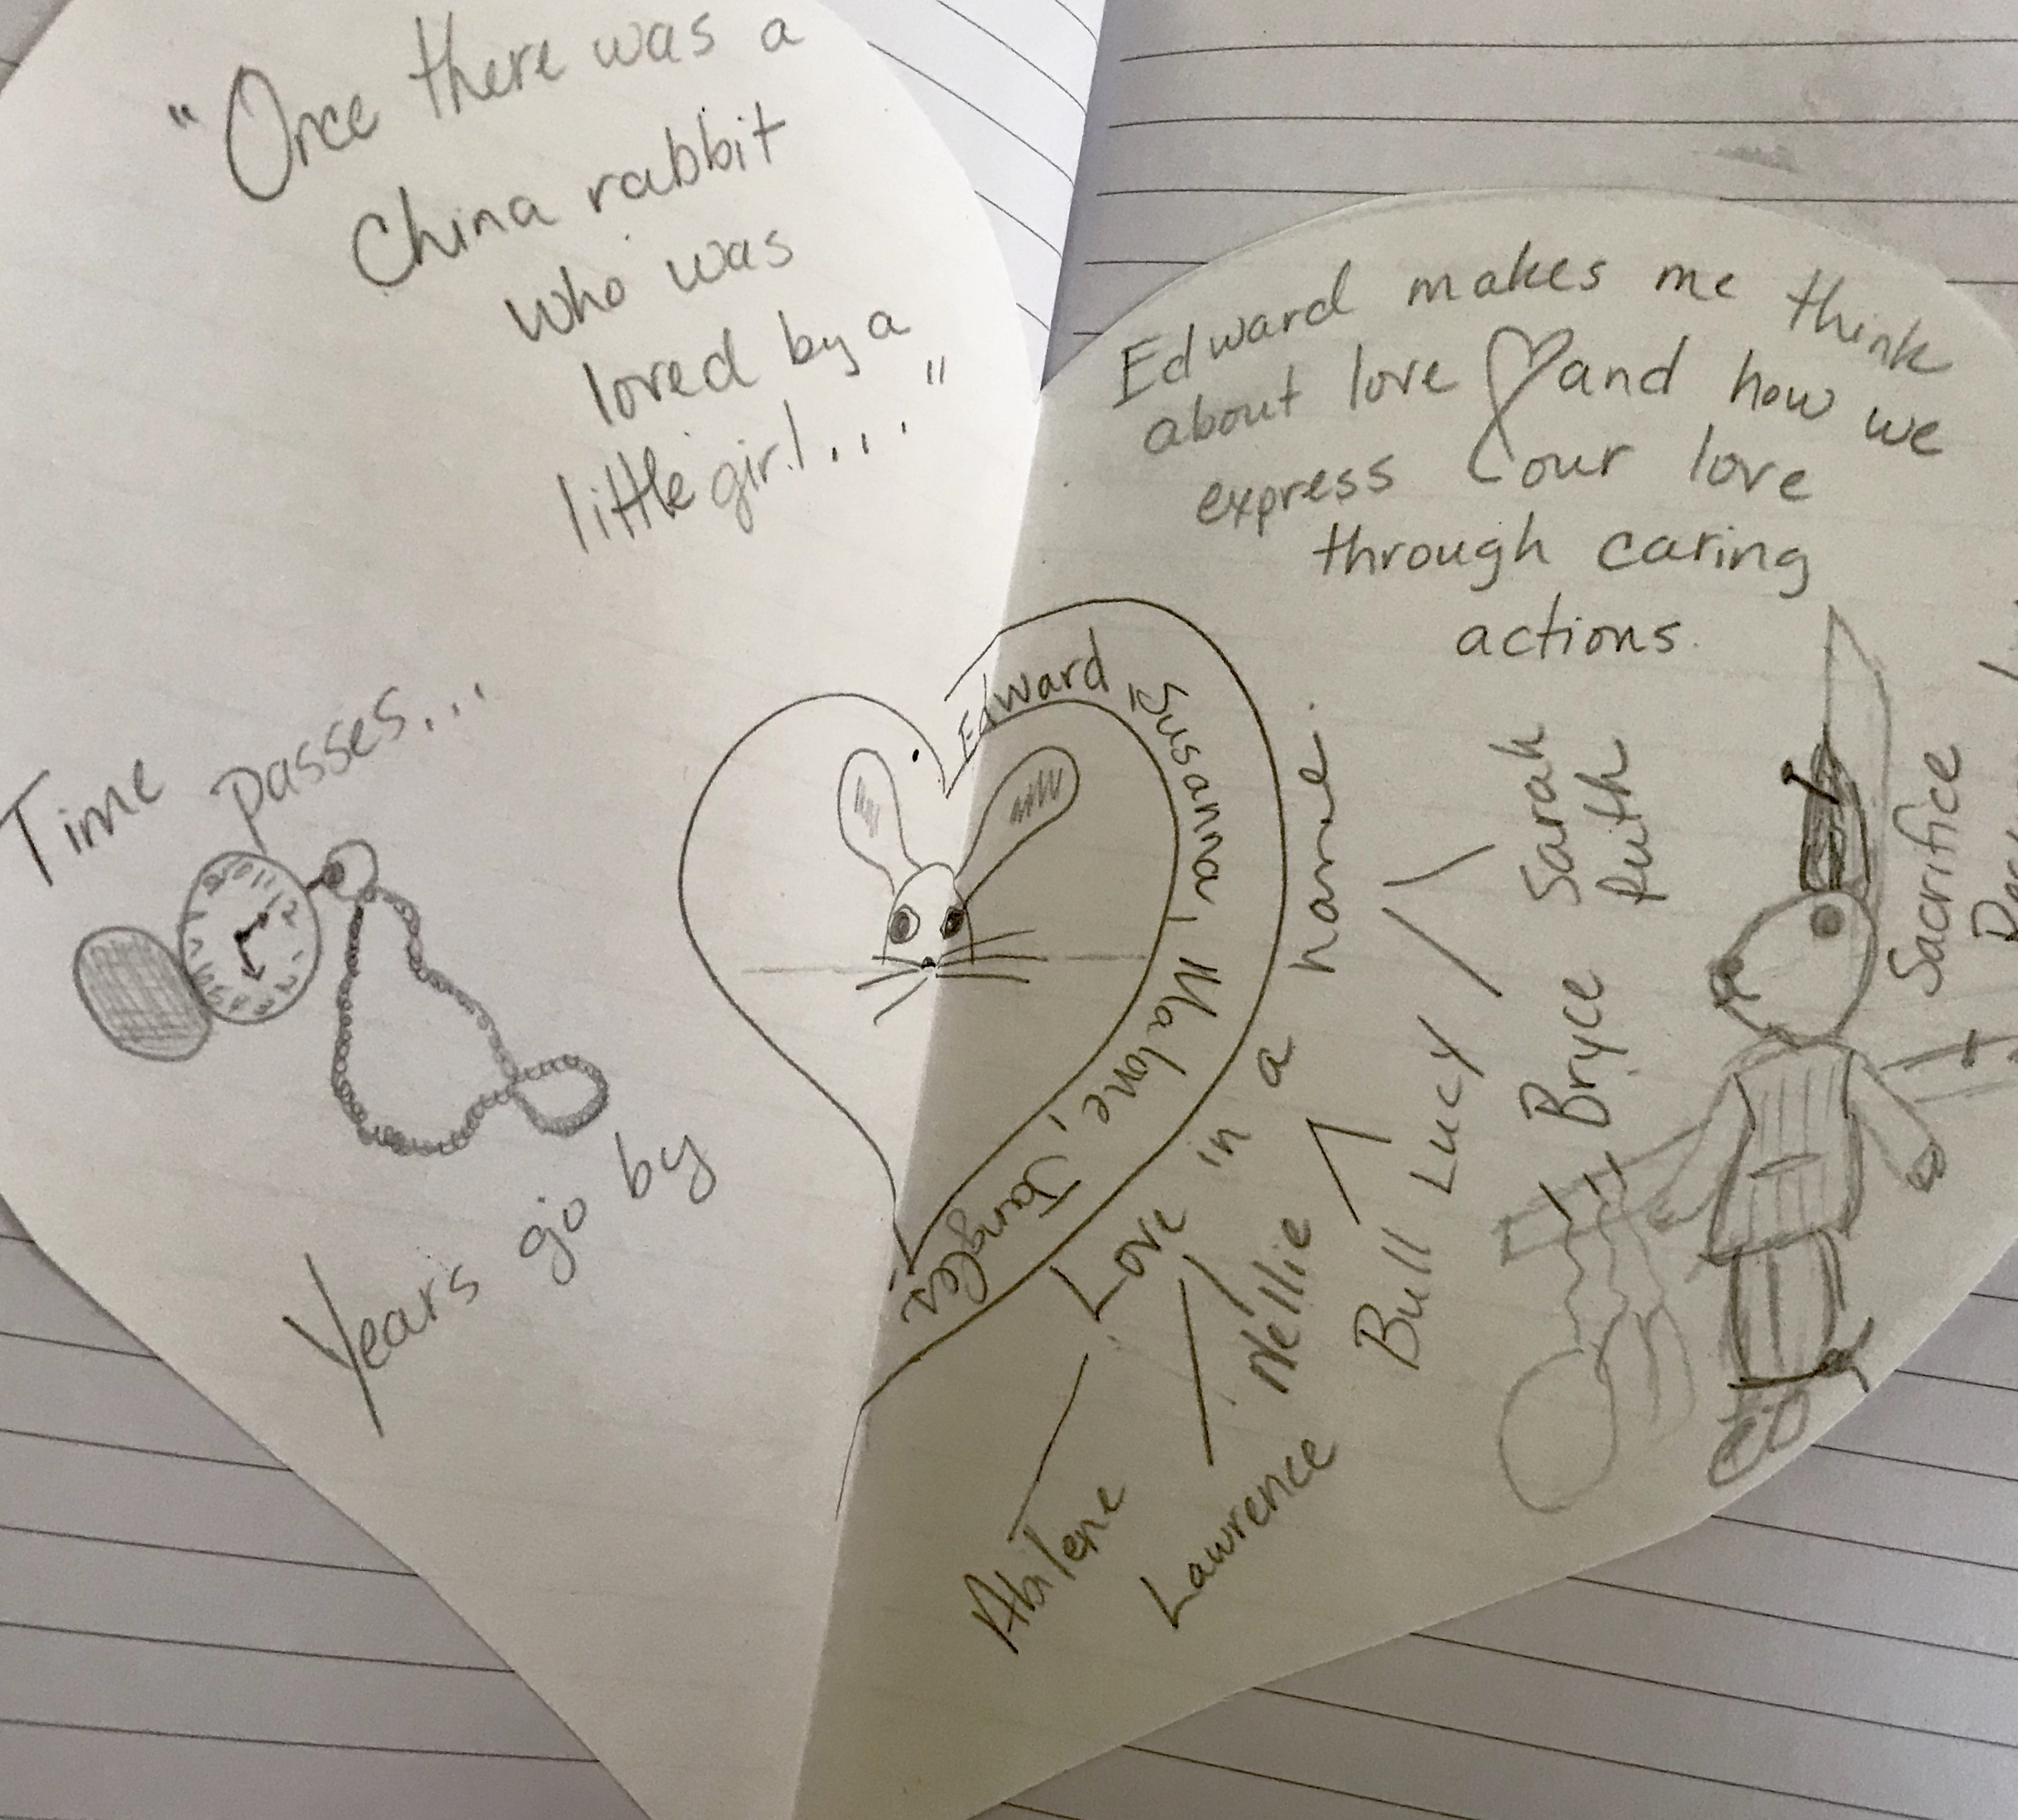 "Once there was a
China rabbit
who was
loved by a
little girl..."
Time passes...
Years go by
Edward makes me think
about love and how we
express our love
through caring
actions.
Edward Susanna, Malone, Jangles
Love in a name.
Abilene
Lawrence
Nellie
Bull
Lucy
Bryce
Sarah
Ruth
Sacrifice